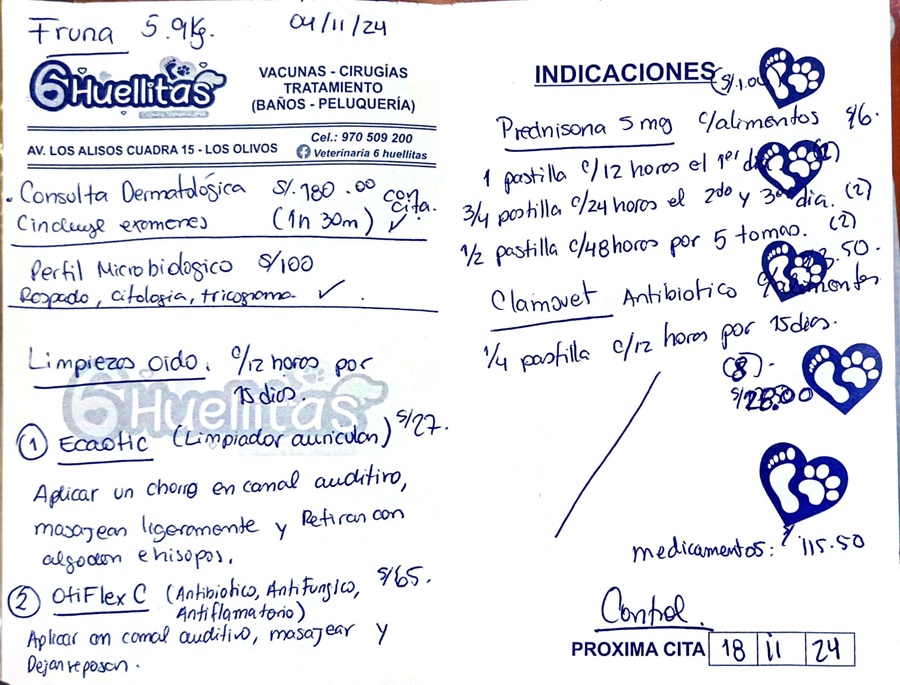 Fruna 5.9Kg. 04/11/24
6Huellitas
VACUNAS - CIRUGÍAS
TRATAMIENTO
(BAÑOS - PELUQUERÍA)
AV. LOS ALISOS CUADRA 15 - LOS OLIVOS
Cel.: 970 509 200
Veterinaria 6 huellitas
. Consulta Dermatológica S/. 180.00 con cita.
Cincluye examenes (1h 30m) ✓
Perfil Microbiologico S/100
Raspado, citologia, tricograma ✓.
Limpiezas oido. c/12 horas por
15 dias.
6Huellitas
① Ecaotic (Limpiador auricular) S/27.
Aplicar un chorro en canal auditivo,
masajear ligeramente y Retirar con
algodon e hisopos.
② OtiFlex C (Antibiotico, AntiFungico, S/65.
Antiflamatorio)
Aplicar en canal auditivo, masajear y
Dejar reposar.
INDICACIONES
(S/1.00
Prednisona 5 mg c/alimentos
1 pastilla c/12 horas el 1er dia (2)
3/4 pastilla c/24 horas el 2do y 3er dia. (2)
1/2 pastilla c/48 horas por 5 tomas. (2)
3.50.
Clamovet Antibiotico c/alimentos
1/4 pastilla c/12 horas por 15 dias.
(8).
S/28.00
medicamentos: 115.50
Control.
PROXIMA CITA 18 11 24